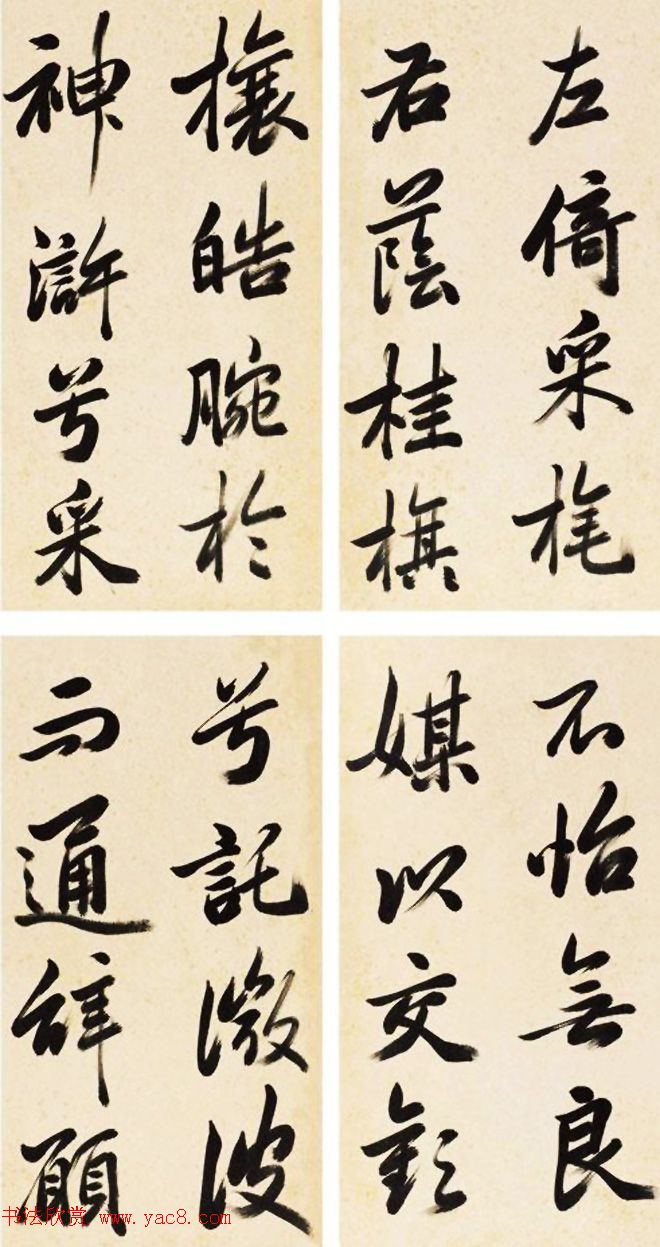 左倚采旄
右蔭桂旗
攘皓腕於
神滸兮采
不怡無良
媒以交歡
兮託微波
而通辭願
书法欣赏 www.yac8.com